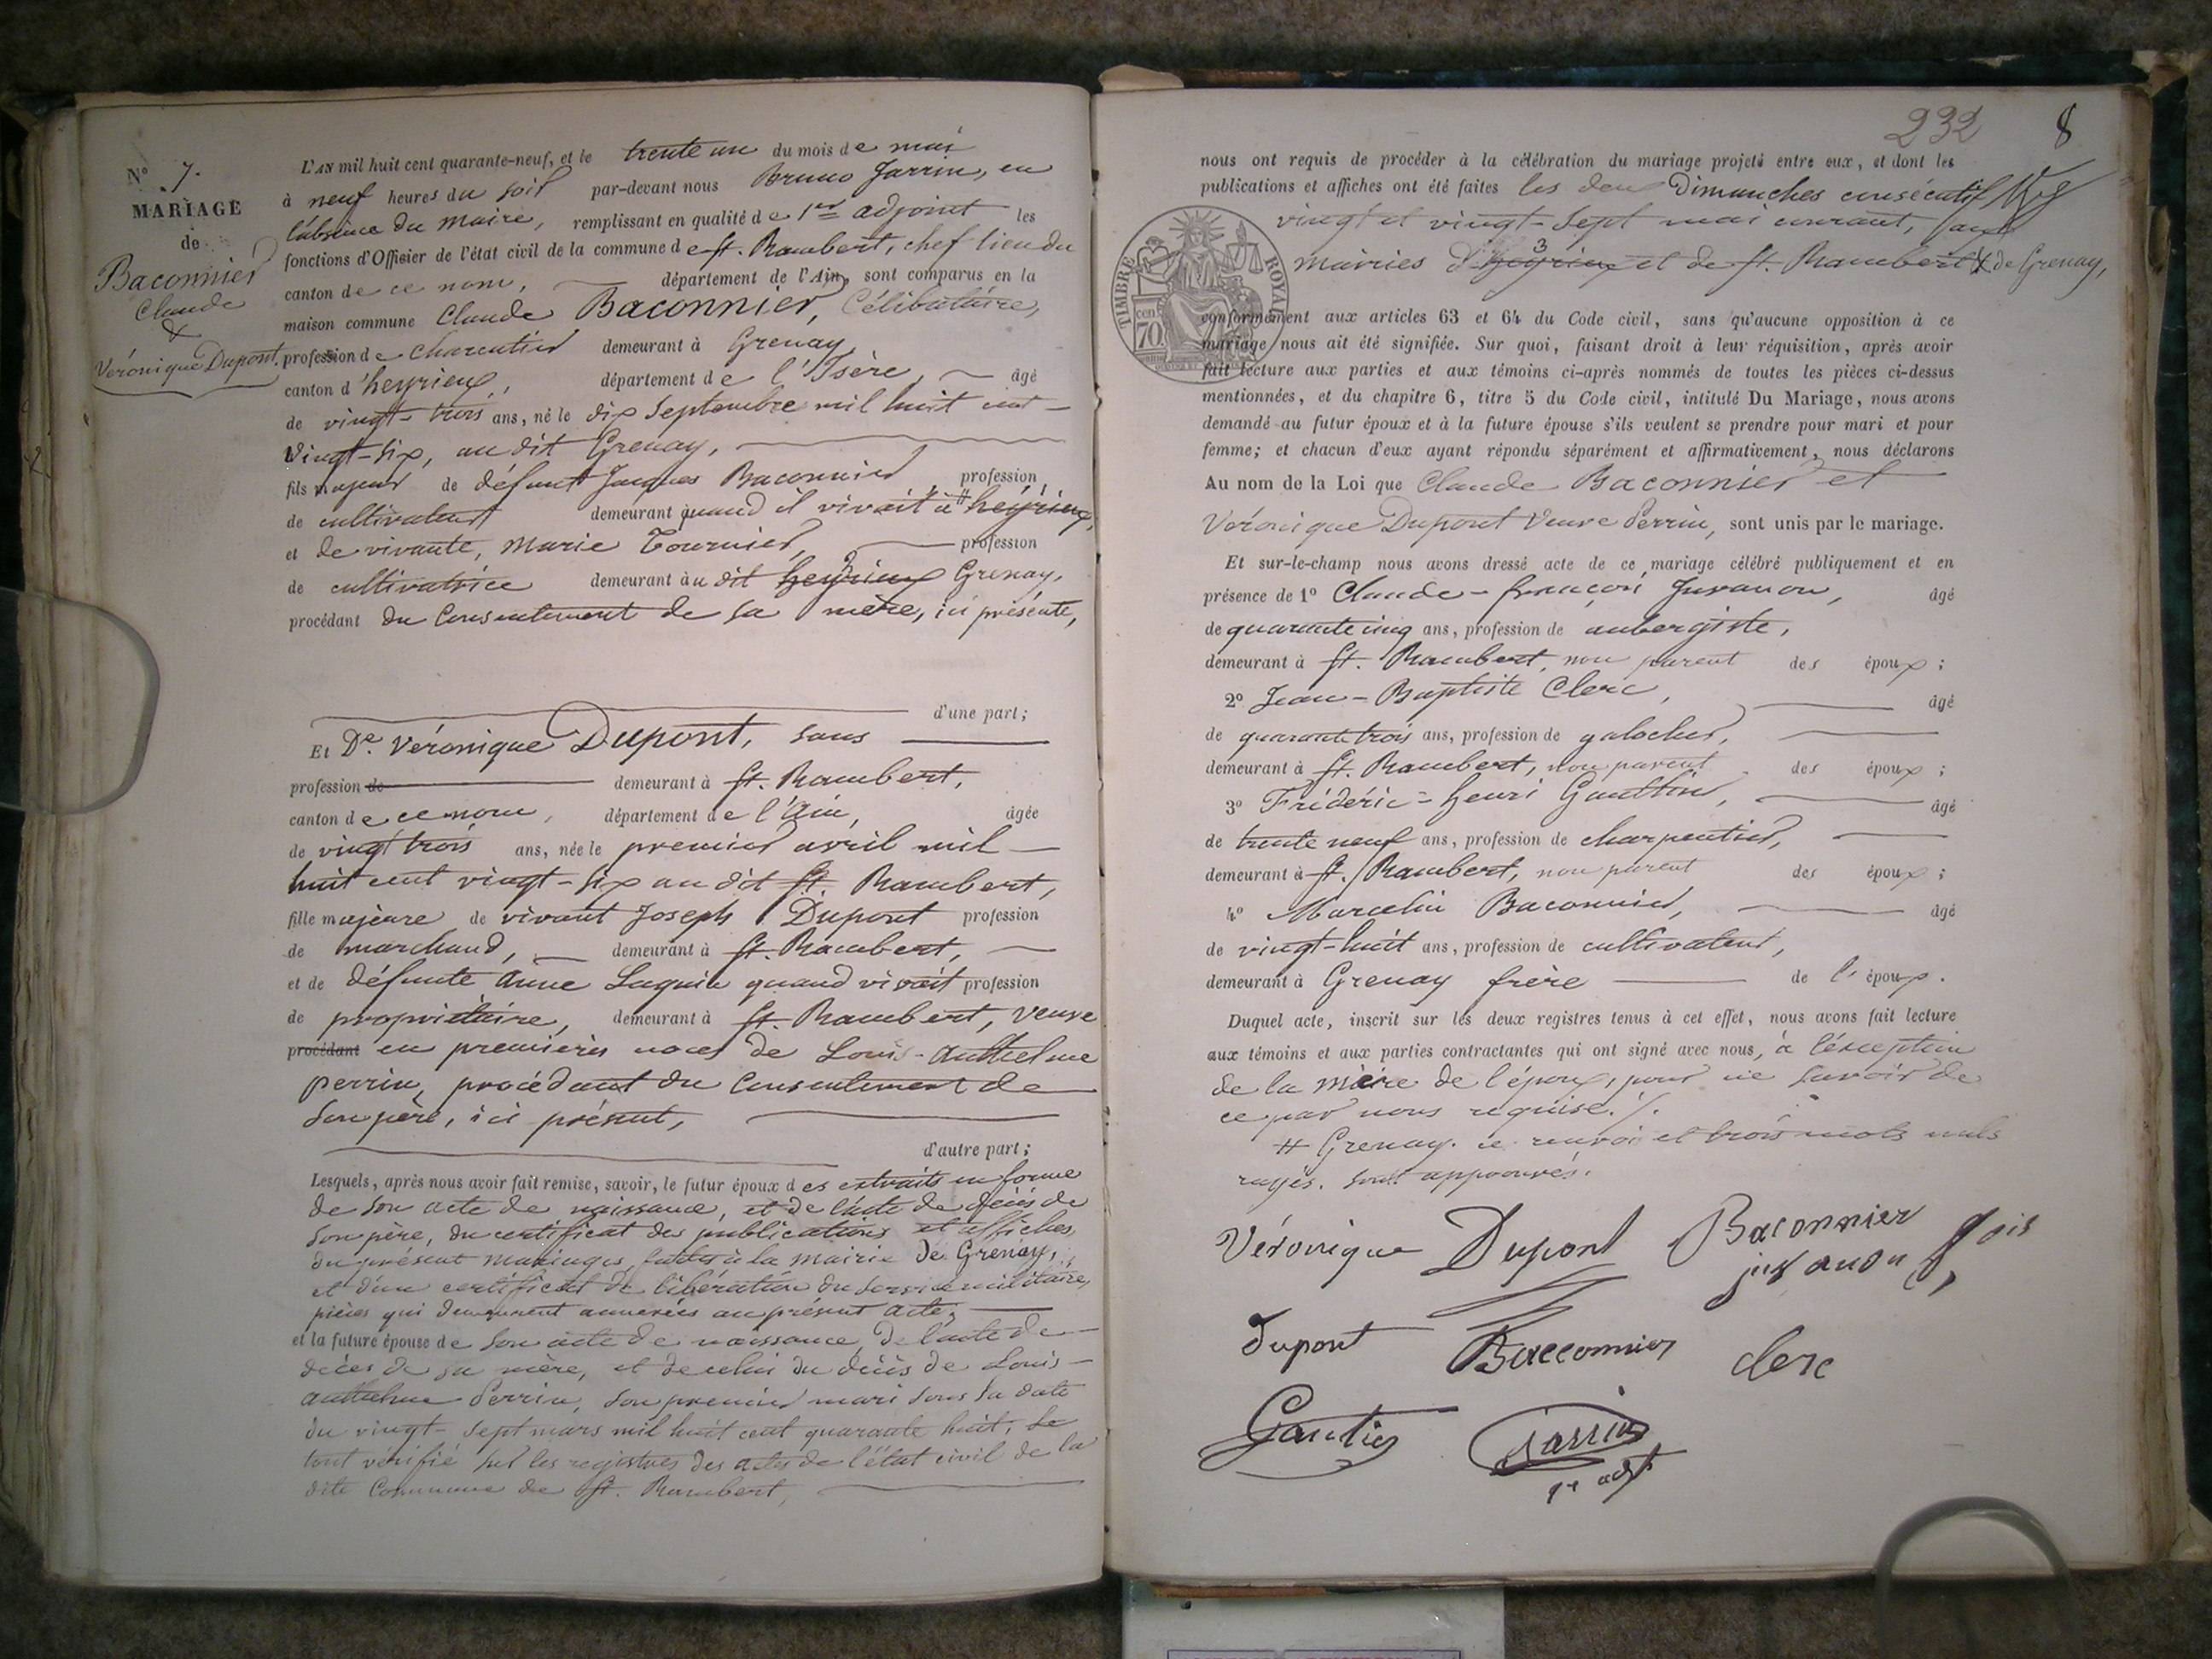 N° 7.
MARIAGE
de
Baconnier
Claude
&
Véronique Dupont.
L'AN mil huit cent quarante-neuf, et le trente un du mois de mai
à neuf heures du soir par-devant nous Bruno Jarrin, en
l'absence du Maire, remplissant en qualité de 1er adjoint les
fonctions d'Officier de l'état civil de la commune de St. Rambert, chef-lieu du
canton de ce nom, département de l'Ain, sont comparus en la
maison commune Claude Baconnier, Célibataire,
profession de charentier demeurant à Grenay,
canton d'heyrieux, département de l'Isère, âgé
de vingt-trois ans, né le dix Septembre mil huit cent
vingt-six, au dit Grenay,
fils majeur de défunt Jacques Baconnier, profession
de cultivateur demeurant quand il vivait à # heyrieux,
et de vivante, Marie Tournier, profession
de cultivatrice demeurant au dit heyrieux Grenay,
procédant du Consentement de sa mère, ici présente,
d'une part;
Et De. Véronique Dupont, sans
profession de demeurant à St. Rambert,
canton de ce nom, département de l'Ain, âgée
de vingt trois ans, née le premier avril mil
huit cent vingt-six au dit St. Rambert,
fille majeure de vivant Joseph Dupont profession
de marchand, demeurant à St. Rambert,
et de défunte Anne quand vivait profession
de propriétaire, demeurant à St. Rambert, veuve
procédant en premières noces de Louis-Anthelme
Perrin, procédant du Consentement de
son père, ici présent,
d'autre part;
Lesquels, après nous avoir fait remise, savoir, le futur époux des extraits en forme
de son acte de naissance, et de l'acte de décès de
son père, du certificat des publications et affiches
du présent mariages faites à la mairie de Grenay,
et d'un certificat de libération du service militaire,
pièces qui demeurent annexées au présent acte;
et la future épouse de son acte de naissance, de l'acte de
décès de sa mère, et de celui du décès de Louis-
Anthelme Perrin, son premier mari sous la date
du vingt-sept mars mil huit cent quarante huit, le
tout vérifié sur les registres des actes de l'état civil de la
dite Commune de St. Rambert,
232 8
nous ont requis de procéder à la célébration du mariage projeté entre eux, et dont les
publications et affiches ont été faites les deux Dimanches consécutif
vingt et vingt-sept mai courant, aux
TIMBRE ROYAL
cen. 70
mairies d'heyrieux 3 et de St. Rambert & de Grenay,
conformément aux articles 63 et 64 du Code civil, sans qu'aucune opposition à ce
mariage nous ait été signifiée. Sur quoi, faisant droit à leur réquisition, après avoir
fait lecture aux parties et aux témoins ci-après nommés de toutes les pièces ci-dessus
mentionnées, et du chapitre 6, titre 5 du Code civil, intitulé Du Mariage, nous avons
demandé au futur époux et à la future épouse s'ils veulent se prendre pour mari et pour
femme; et chacun d'eux ayant répondu séparément et affirmativement, nous déclarons
Au nom de la Loi que Claude Baconnier et
Véronique Dupont Veuve Perrin, sont unis par le mariage.
Et sur-le-champ nous avons dressé acte de ce mariage célébré publiquement et en
présence de 1° Claude-françois Juvanon, âgé
de quarante cinq ans, profession de aubergiste,
demeurant à St. Rambert, non parent des époux;
2° Jean-Baptiste Clerc, âgé
de quarante trois ans, profession de galocher,
demeurant à St. Rambert, non parent des époux;
3° Frédéric-henri Gauthier, âgé
de trente neuf ans, profession de charpentier,
demeurant à St. Rambert, non parent des époux;
4° Marcelin Baconnier, âgé
de vingt-huit ans, profession de cultivateur,
demeurant à Grenay frère de l'époux.
Duquel acte, inscrit sur les deux registres tenus à cet effet, nous avons fait lecture
aux témoins et aux parties contractantes qui ont signé avec nous, à l'exception
de la mère de l'époux, pour ne savoir de
ce par nous requise./.
# Grenay. ce renvoi et trois mots nuls
rayés. sont approuvés.
Véronique Dupont Baconnier
juvanon fois
Dupont Bacconnier clerc
Gautier Jarrin
1er adjt